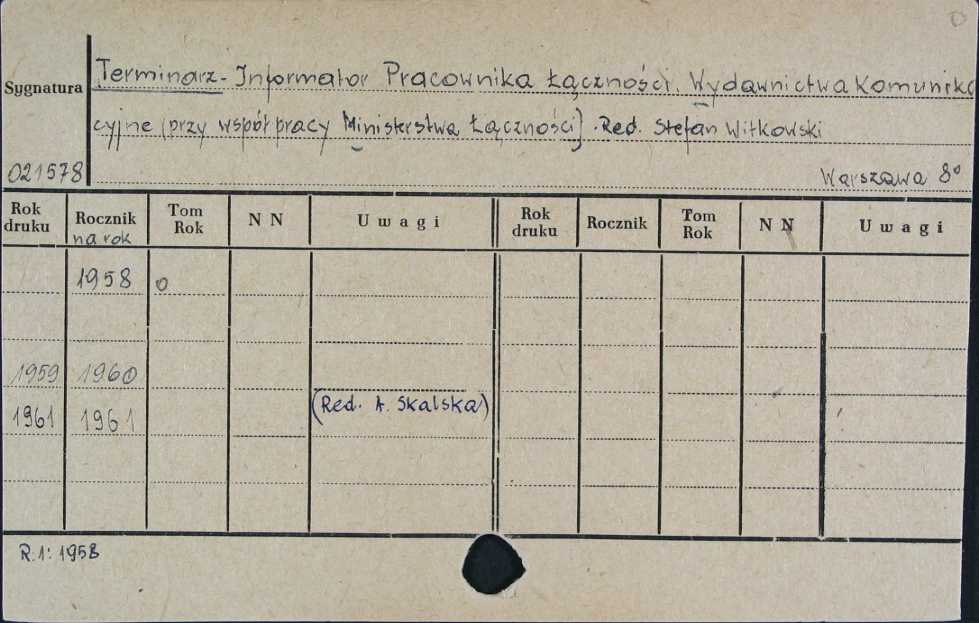 Terminarz - Informator Pracownika Łączności. Wydawnictwa Komunika
Sygnatura
cyjne (przy współpracy Ministerstwa Łączności). Red. Stefan Witkowski
021578
Warszawa 8°
Rok druku Rocznik na rok Tom Rok N N Uwagi Rok druku Rocznik Tom Rok N N Uwagi
1958 o
1959 1960
(Red. A. Skalska)
1961 1961
R.1: 1958